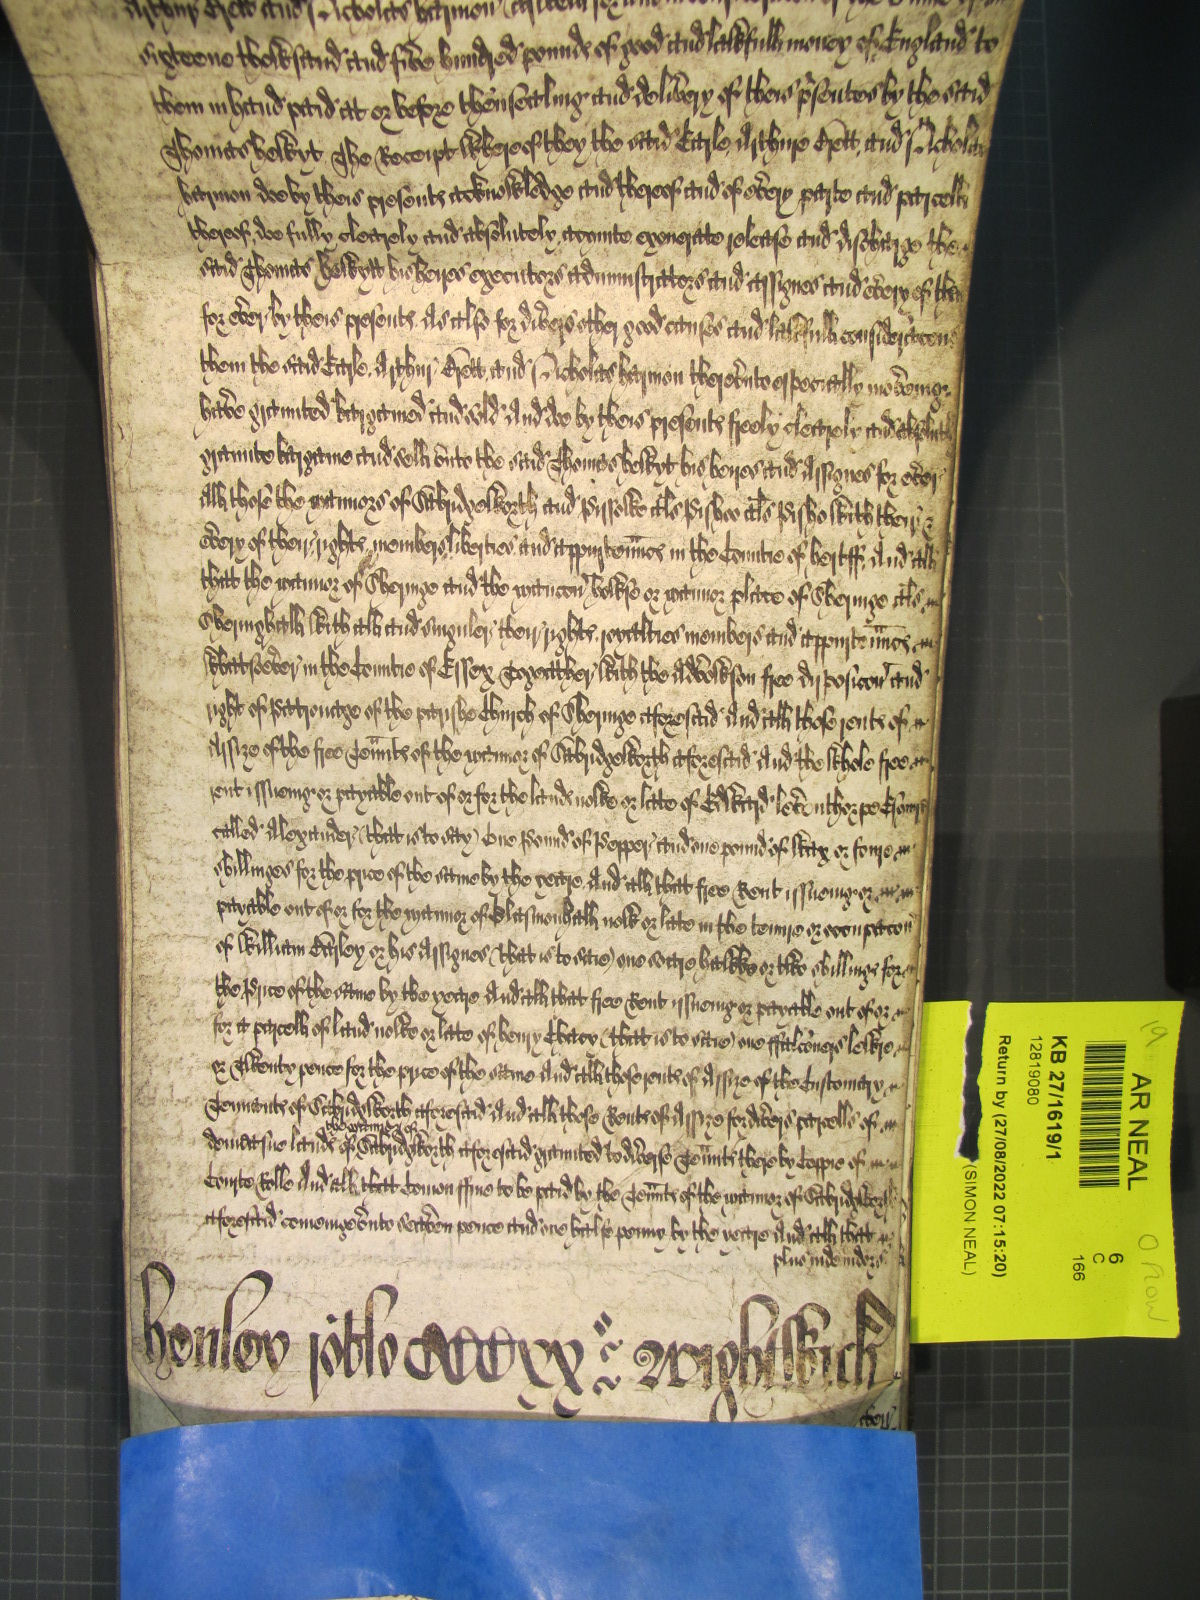 Arthure Capell and Nicholas harmon
sixteene thowsand and five hundred pounds of good and lawfull money of England to
them in hand paid at or before thensealing and delivery of theis p'sentes by the said
Thomas hewyt The Receipt whereof they the said Earle, Arthure Capell, and Nicholas
harmon doe by theis presents acknowledge and thereof and of every parte and parcell
thereof, doe fully clerely and absolutely, acquite exonerate release and discharge the
said Thomas hewytt his heires executors administrators and assignes and every of them
for ever by theis presents. As also for divers other good causes and lawfull consideracons
them the said Earle, Arthur Capell, and Nicholas harmon therevnto especially moveing
have graunted bargained and sold And doe by theis presents freely clerely and absolutely
graunte bargaine and sell vnto the said Thomas hewyt his heires and Assignes for ever
All those the mannors of Sabridgeworth and Pissowe als Pishoe als Pisho with their &
every of their rights, members liberties and appurtennces in the Countie of hertff. And all
that the mannor of Sheringe and the mancon howse or mannor place of Sheringe als
Sheringhall with all and singuler their rights, royalties members and appurtennces
whatsoever in the Countie of Essex Togeather with the Advowson free disposicon and
right of Patronage of the parishe Church of Sheringe aforesaid And all those rents of
Assize of the free Tennts of the mannor of Sabridgeworth aforesaid And the whole free
rent issueing or payable out of or for the lands nowe or late of Edward
called Alexander (that is to say) One Pound of Pepper and one pound of wax or
shillinges for the price of the same by the yeare And all that free Rent issueing or
payable out of or for the mannor of Blasmonhall nowe or late in the tenure or occupacon
of William or his Assignes (that is to saie) one or two shillings for
the Price of the same by the yeare And all that free Rent issueing or payable out of or
for a parcell of land nowe or late of henry (that is to saie) one
or Twenty pence for the price of the same And all those rents of Assize of the Customary
Tennants of Sabridgworth aforesaid And all those Rents of Assize for divers parcells of
the mannor of
demeasne lands of Sabridgworth aforesaid graunted to diverse Tennts there by Coppie of
Courte Rolle And all that Comon ffine to be paid by the Tennts of the mannor of Sabridgworth
aforesaid comeinge vnto seaven pence and one halfe penny by the yeare And all that
plus inde indors
henley rotlo CCCCxx Wightwick
AR NEAL
KB 27/1619/1
12819080
Return by (27/08/2022 07:15:20)
(SIMON NEAL)
6
C
166
19